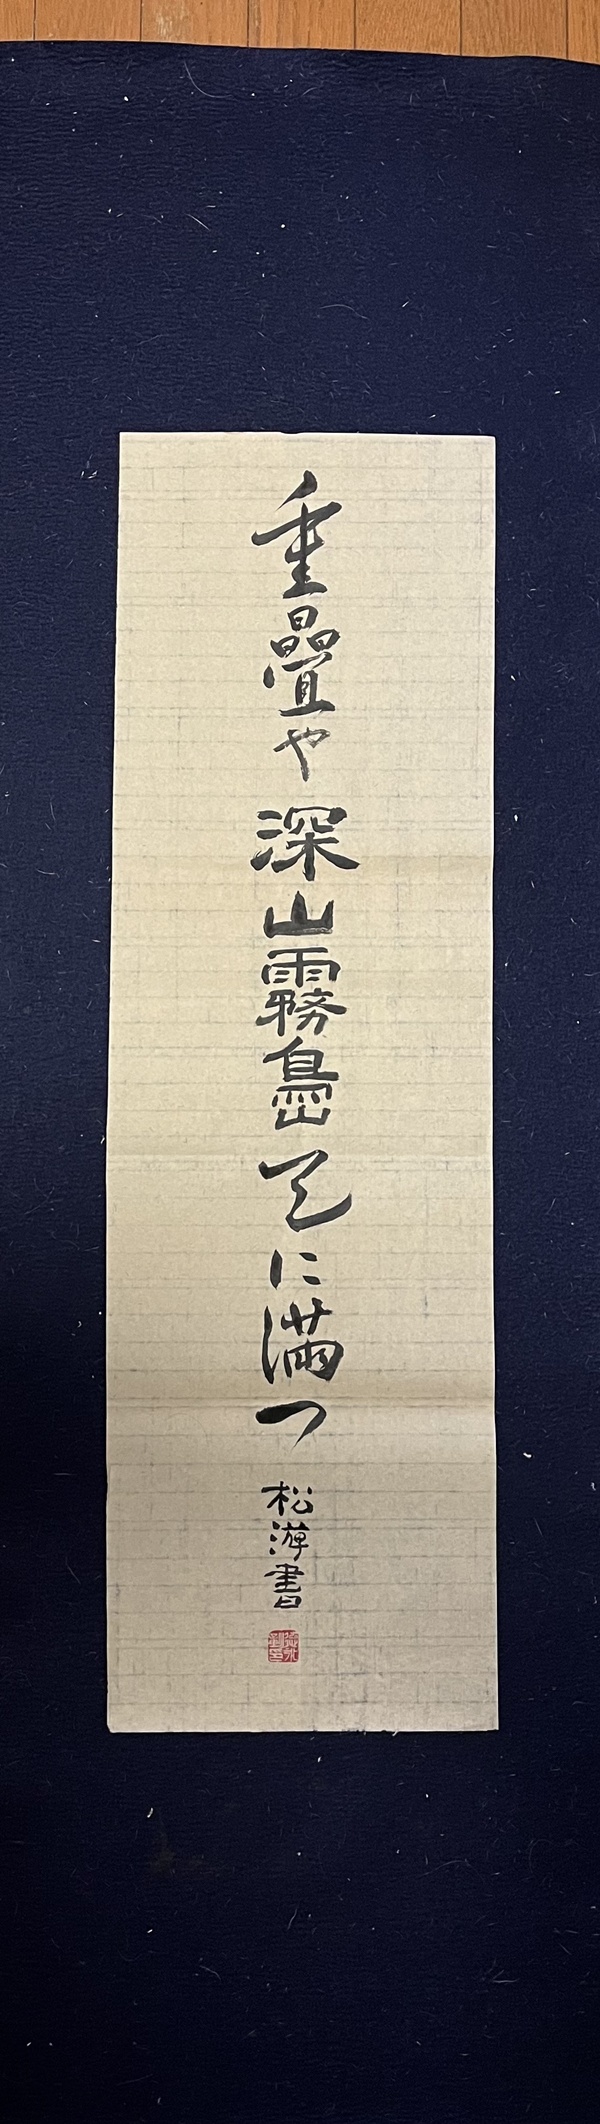 重疊や深山霧島天に満つ
松游書